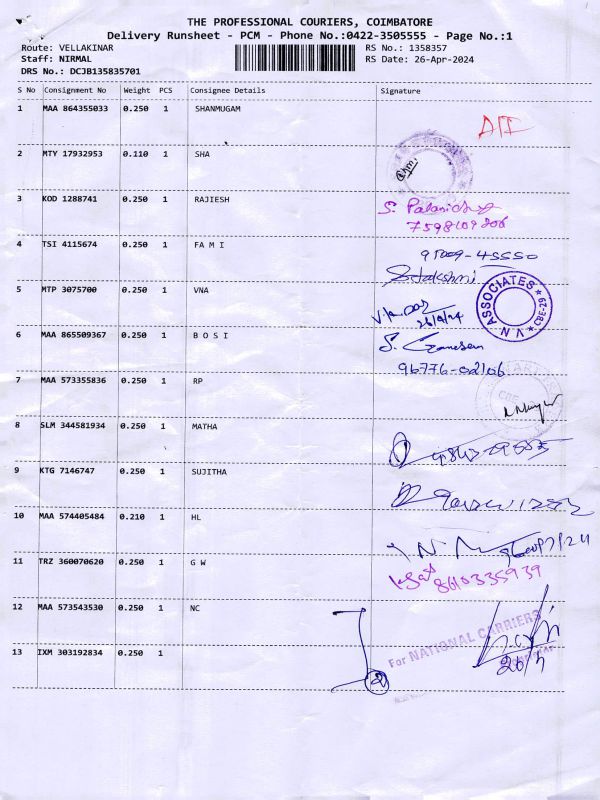 THE PROFESSIONAL COURIERS, COIMBATORE
Delivery Runsheet - PCM - Phone No.:0422-3505555 - Page No.:1
Route: VELLAKINAR RS No.: 1358357
Staff: NIRMAL RS Date: 26-Apr-2024
DRS No.: DCJB135835701
S No Consignment No Weight PCS Consignee Details Signature
1 MAA 864355033 0.250 1 SHANMUGAM
2 MTY 17932953 0.110 1 SHA
3 KOD 1288741 0.250 1 RAJIESH
S.
4 TSI 4115674 0.250 1 FA M I
5 MTP 3075700 0.250 1 VNA
26/4/24
V N ASSOCIATES
CBE-29
6 MAA 865509367 0.250 1 B O S I
S. Ganesan
96776-02106
7 MAA 573355836 0.250 1 RP
8 SLM 344581934 0.250 1 MATHA
9 KTG 7146747 0.250 1 SUJITHA
10 MAA 574405484 0.210 1 HL
11 TRZ 360070620 0.250 1 G W
8610335939
12 MAA 573543530 0.250 1 NC
For NATIONAL CARRIERS
13 IXM 303192834 0.250 1
2
26/4